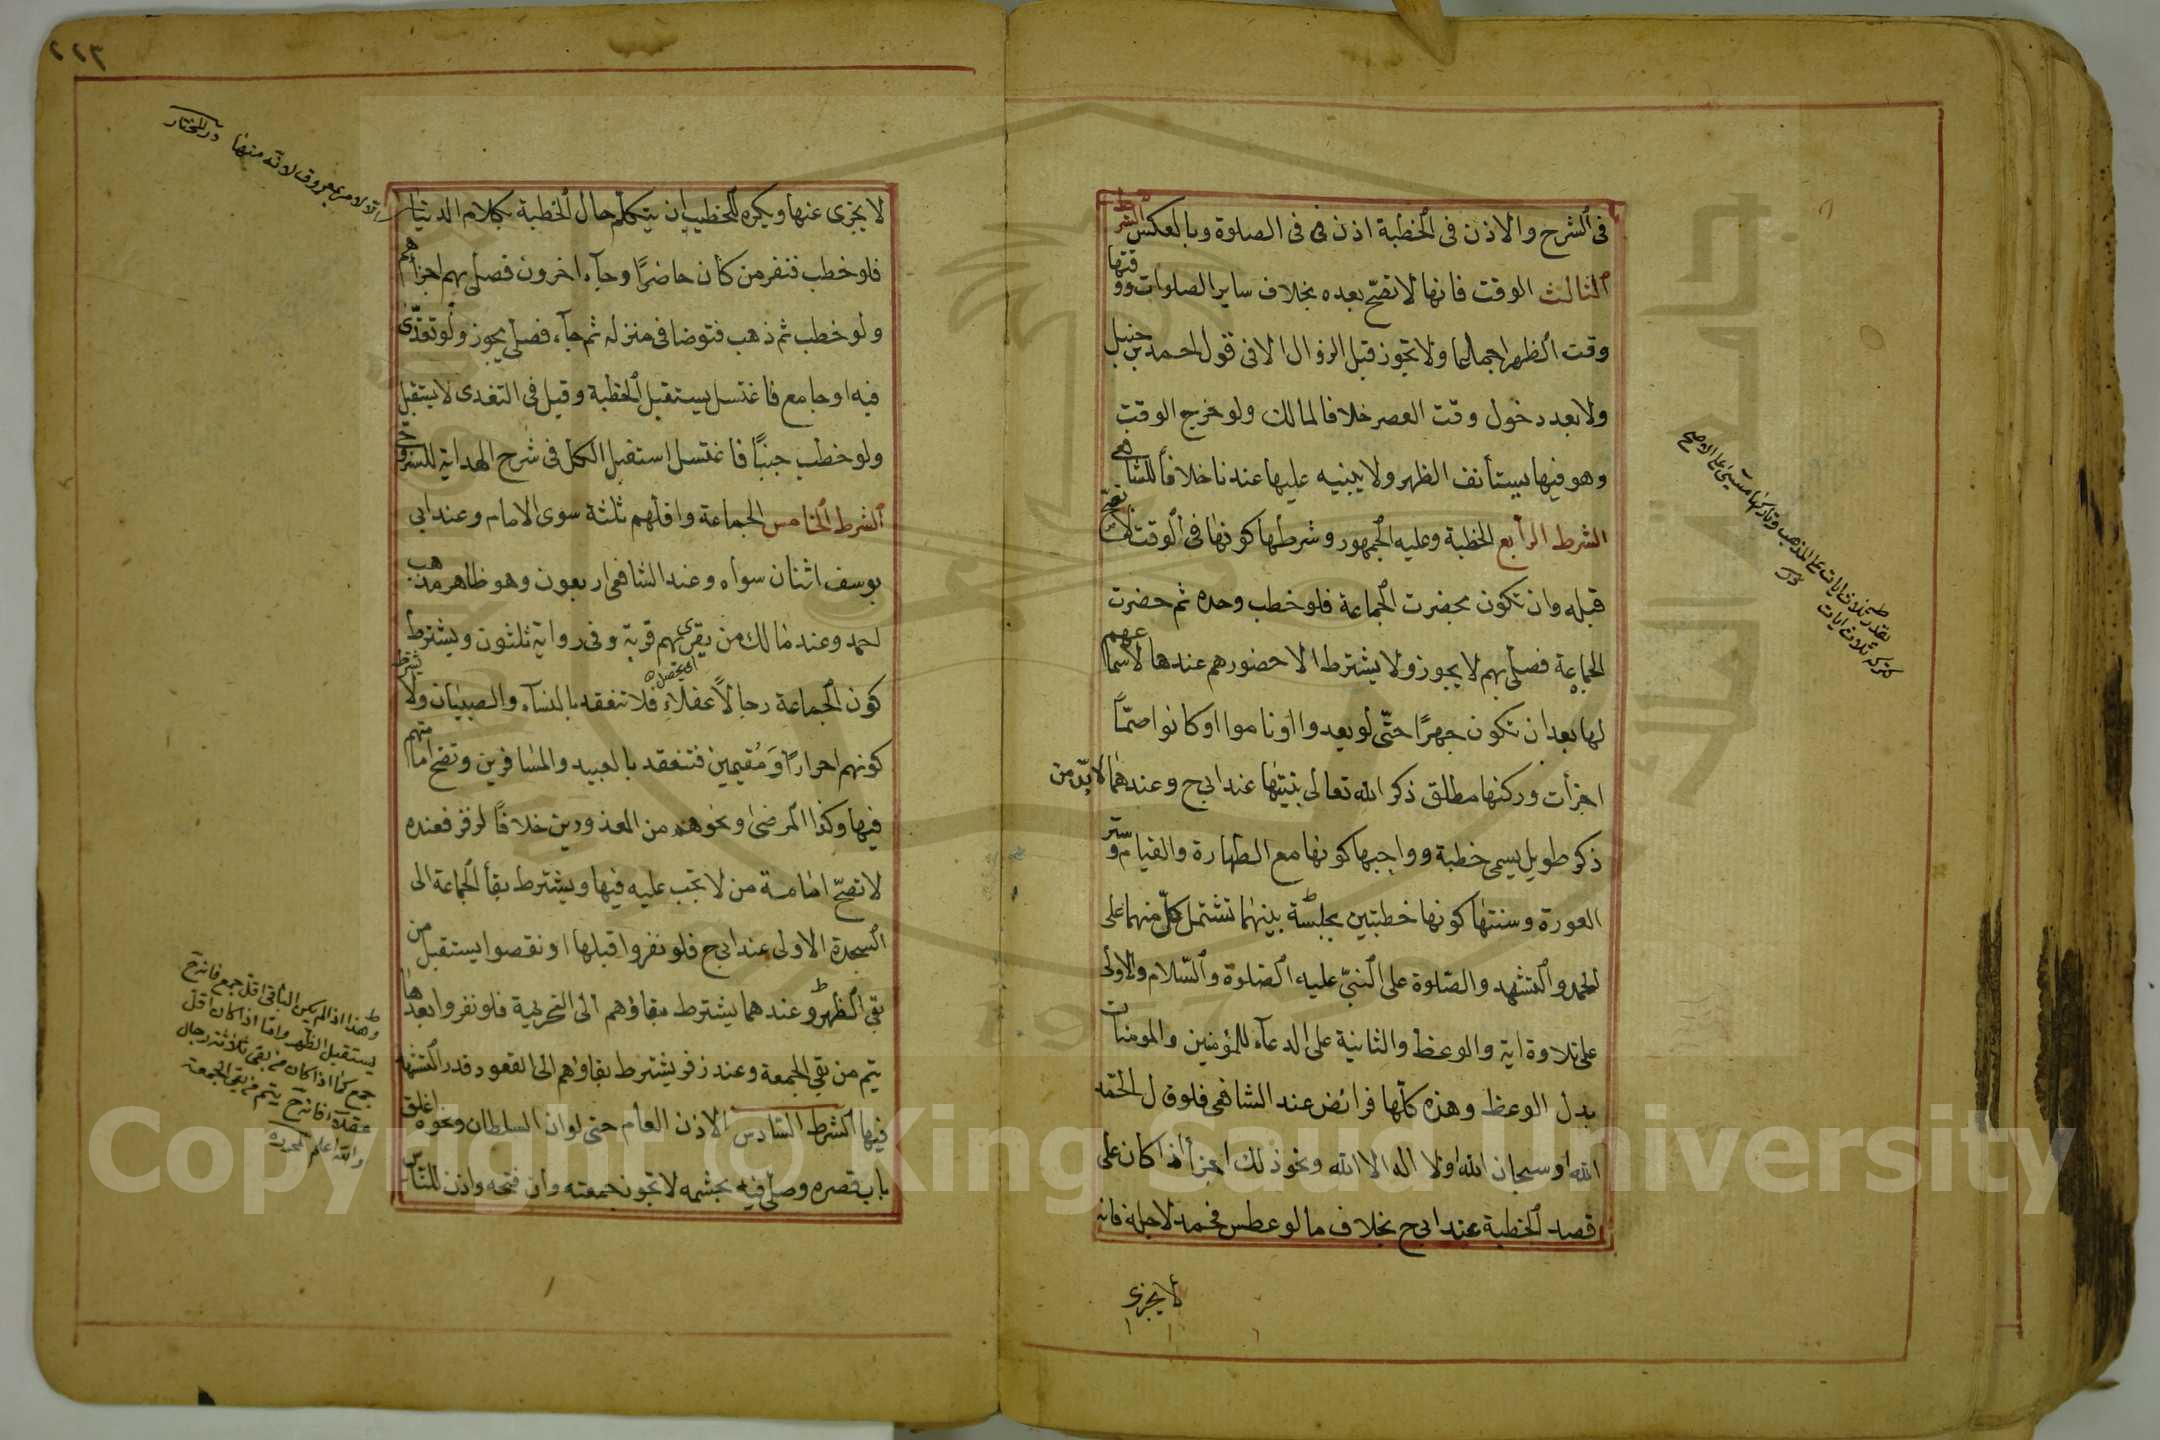 في الشرح والاذن في الخطبة اذن في الصلوة وبالعكس الشرط
الثالث الوقت فانها لا تصح بعده بخلاف ساير الصلوات ووقتها
وقت الظهر اجماعا ولا تجوز قبل الزوال الا في قول احمد بن حنبل
ولا بعد دخول وقت العصر خلافا لمالك ولو خرج الوقت
وهو فيها يستأنف الظهر ولا يبنيه عليها عندنا خلافا للشافعي
الشرط الرابع الخطبة وعليه الجمهور وشرطها كونها في الوقت فلا تصح
قبله وان تكون بحضرت الجماعة فلو خطب وحده ثم حضرت
الجماعة فصلى بهم لا يجوز ولا يشترط الا حضورهم عندها لاسماعهم
لها بعد ان تكون جهرًا حتّى لو بعدوا او ناموا او كانوا صمًّا
اجزأت وركنها مطلق ذكر الله تعالى بنيتها عند ابي ح وعندهما لا بدّ من
ذكر طويل يسمى خطبة وواجبها كونها مع الطهارة والقيام وستر
العورة وسنتها كونها خطبتين بجلسة بينهما تشتمل كلّ منهما على
الحمد والتشهد والصّلوة على النبيّ عليه الصّلوة والسّلام والاولى
على تلاوة اية والوعظ والثانية على الدعآء للمؤمنين والمومنات
بدل الوعظ وهذه كلّها فرائض عند الشافعي فلو قال الحمد
الله او سبحان الله او لا اله الا الله ونحو ذلك اجزأ اذا كان على
قصد الخطبة عند ابي ح بخلاف ما لو عطس فحمد لاجله فانه
لا يجزى
بقدر ثلاث ايات على المذهب وتاركها مسيئ على الاصح
كتركه ثلاث ايات
در
٢٢٣
لا يجزى عنها ويكره للخطيب ان يتكلّم حال الخطبة بكلام الدنيا
فلو خطب فنفر من كان حاضرًا وجآء اخرون فصلى بهم اجزأهم
ولو خطب ثم ذهب فتوضا في منزله ثم جآء فصلى يجوز ولو تغدّى
فيه او جامع فاغتسل يستقبل الخطبة وقيل في التغدى لا يستقبل
ولو خطب جنبًا فاغتسل استقبل الكل في شرح الهداية للسروجي
الشرط الخامس الجماعة واقلهم ثلثة سوى الامام وعند ابي
يوسف اثنان سواه وعند الشافعي اربعون وهو ظاهر مذهب
احمد وعند مالك من يقرى بهم قرية وفي رواية ثلثون ويشترط
كون الجماعة رجالًا عقلاء فلا تنعقد بالنسآء والصبيان ولا يشترط
كونهم احرارًا ومُقيمين فتنعقد بالعبيد والمسافرين وتصح امامتهم
فيها وكذا المرضى ونحوهم من المعذورين خلافًا لزفر فعنده
لا تصحّ امامة من لا تجب عليه فيها ويشترط بقأ الجماعة الى
السجدة الاولى عند ابي ح فلو نفروا قبلها او نقصوا يستقبل من
بقي الظهر وعندهما يشترط بقاؤهم الى التحريمة فلو نفروا بعدها
يتم من بقي الجمعة وعند زفر يشترط بقاؤهم الى القعود قدر التشهد
فيها الشرط السّادس الاذن العام حتى لو ان السلطان ونحوه اغلق
باب قصره وصلى فيه بحشمه لا تجوز جمعته وان فتحه واذن للنّاس
الا لامر بمعروف لانه منها در المختار
وهذا اذا لم يكن الباقي اقل جمع فانه ح
يستقبل الظهر واما اذا كان اقل
جمع كما اذا كان من بقى ثلاثة رجال
فانه ح يتم من بقي الجمعة
والله اعلم